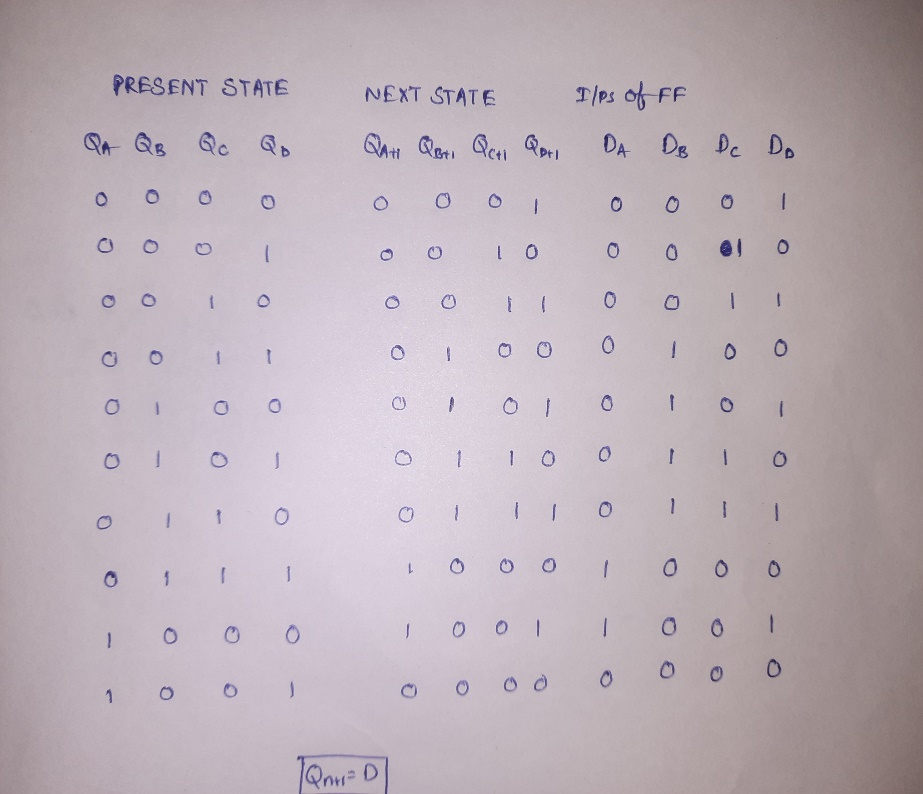 PRESENT STATE NEXT STATE I/Ps of FF
QA QB QC QD QA+1 QB+1 QC+1 QD+1 DA DB DC DD
0 0 0 0 0 0 0 1 0 0 0 1
0 0 0 1 0 0 1 0 0 0 1 0
0 0 1 0 0 0 1 1 0 0 1 1
0 0 1 1 0 1 0 0 0 1 0 0
0 1 0 0 0 1 0 1 0 1 0 1
0 1 0 1 0 1 1 0 0 1 1 0
0 1 1 0 0 1 1 1 0 1 1 1
0 1 1 1 1 0 0 0 1 0 0 0
1 0 0 0 1 0 0 1 1 0 0 1
1 0 0 1 0 0 0 0 0 0 0 0
Qn+1 = D